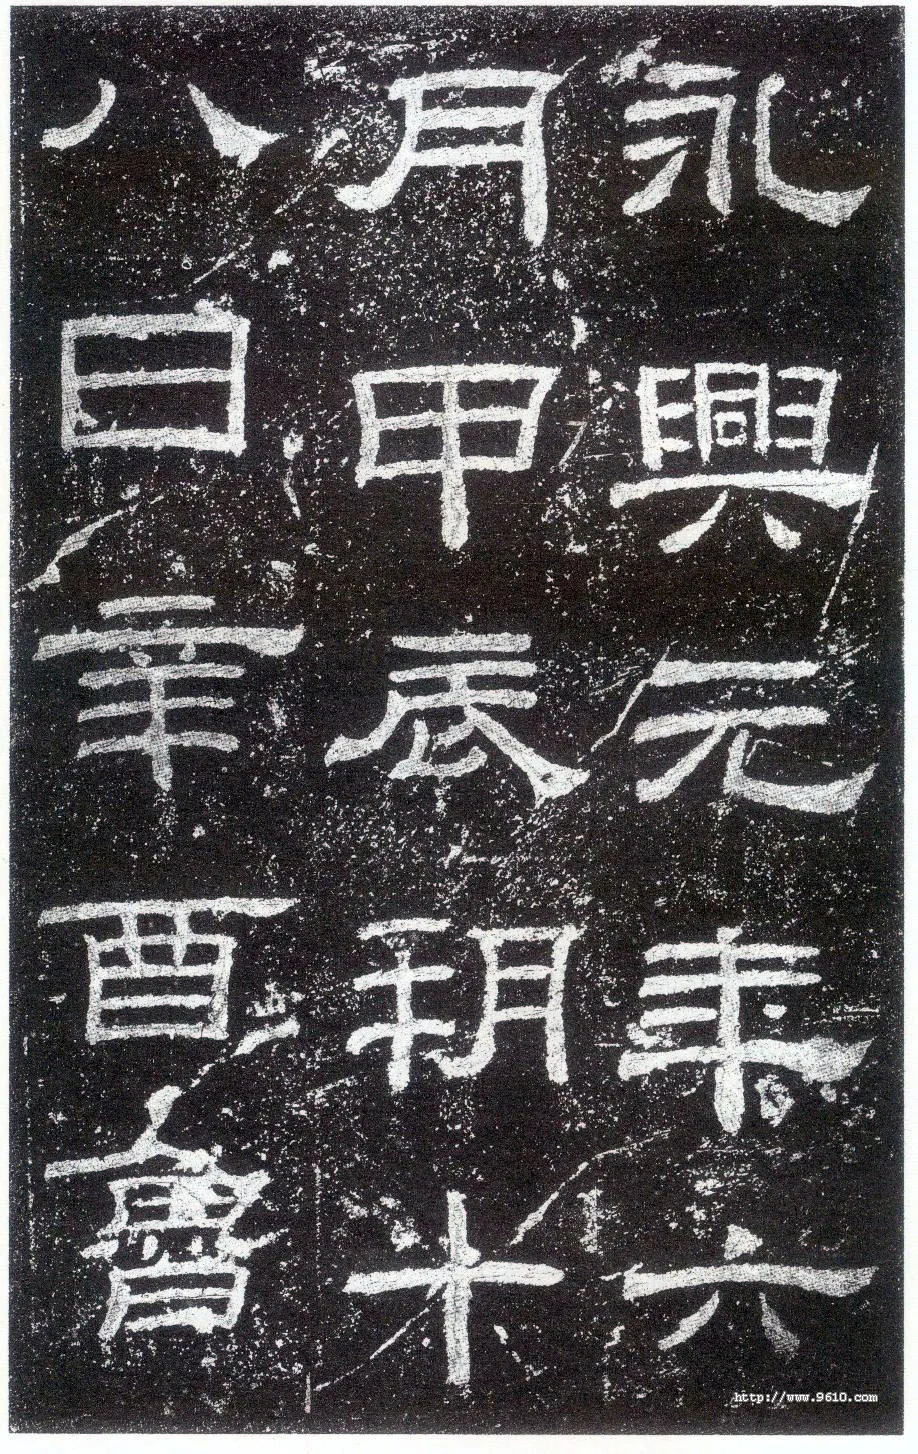 永興元年六
月甲辰朔十
八日辛酉魯
http://www.9610.com